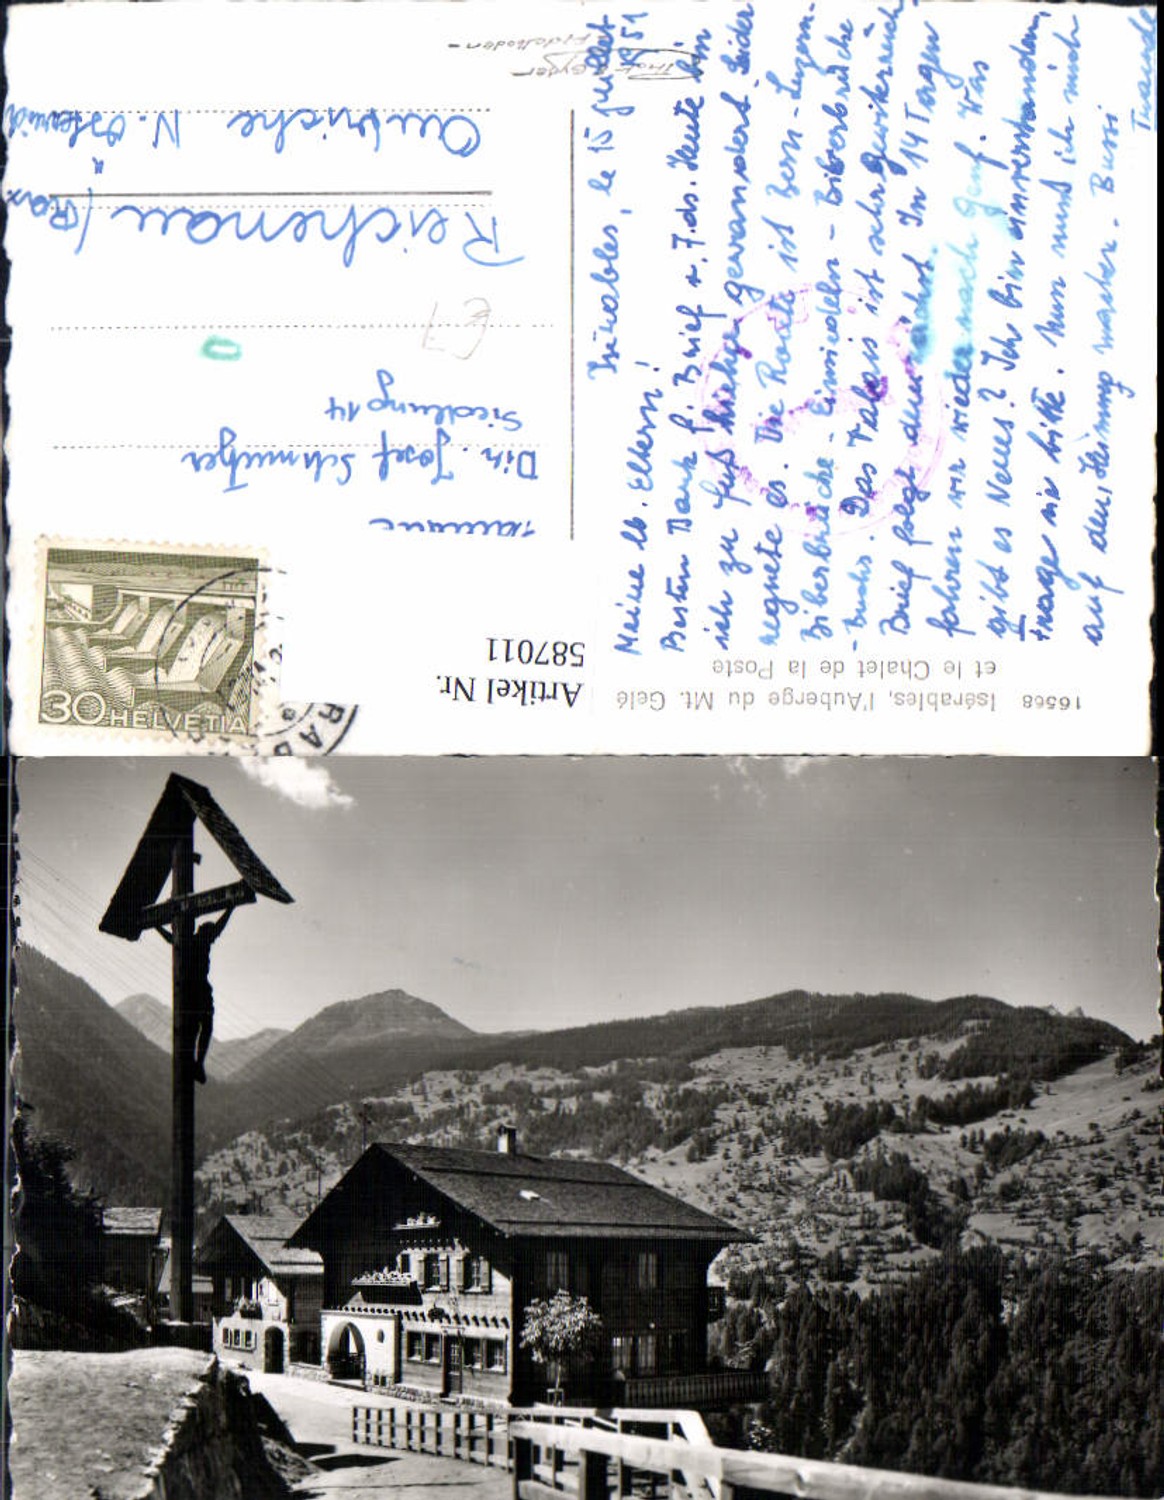 16568 Isérables, l'Auberge du Mt. Gelé
et le Chalet de la Poste
Artikel Nr.
587011
HELVETIA
30
Dir. Josef Schmutzer
Siedlung 14
Reichenau (Rax
Autriche N. Österreich
Adelboden -
Isérables, le 15 juillet
1951
Meine lb. Eltern!
Besten Dank f. Brief v. 7. ds. Heute bin
ich zu Fuß hieher gewandert. Leider
regnete es. Die Route ist Bern - Luzern -
Biberbrücke - Einsiedeln - Biberbrücke
- Buchs. Das Valais ist sehr
Brief folgt In 14 Tagen
fahren wir wieder nach Genf. Was
gibt es Neues? Ich bin einverstanden,
frage sie bitte. Nun muß ich mich
auf den Heimweg machen. Bussi
Traude